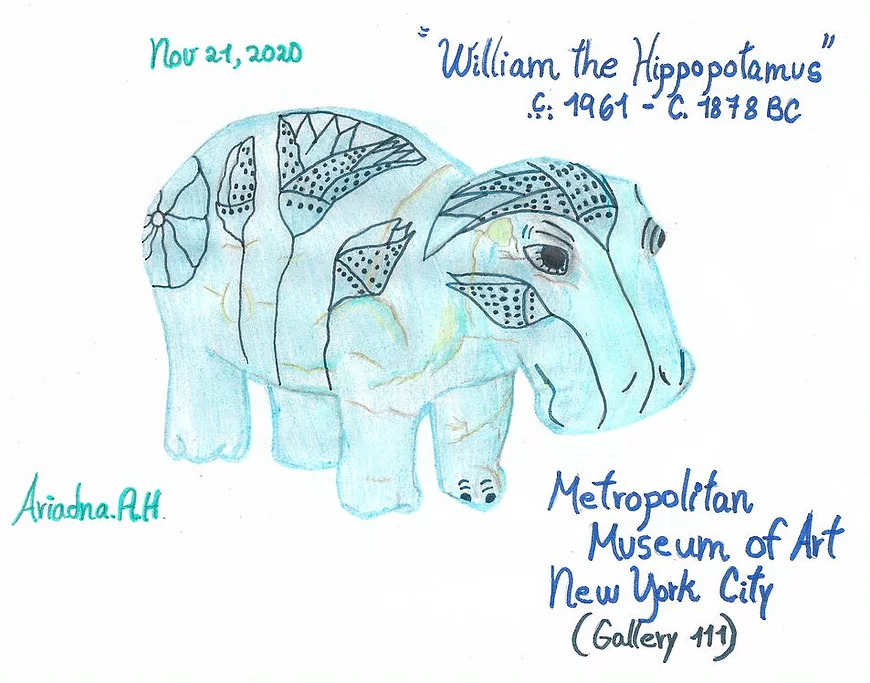 Nov 21, 2020
"William the Hippopotamus"
c. 1961 - c. 1878 BC
Ariadna.A.H.
Metropolitan
Museum of Art
New York City
(Gallery 111)